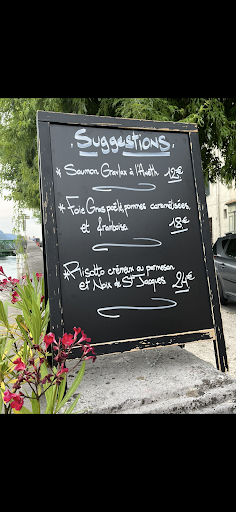 Suggestions
* Saumon Gravlax à l'Aneth 12€
* Foie Gras poêlé, pommes caramélisées,
et framboise 18€
* Risotto crémeux au parmesan
et Noix de St Jacques 24€